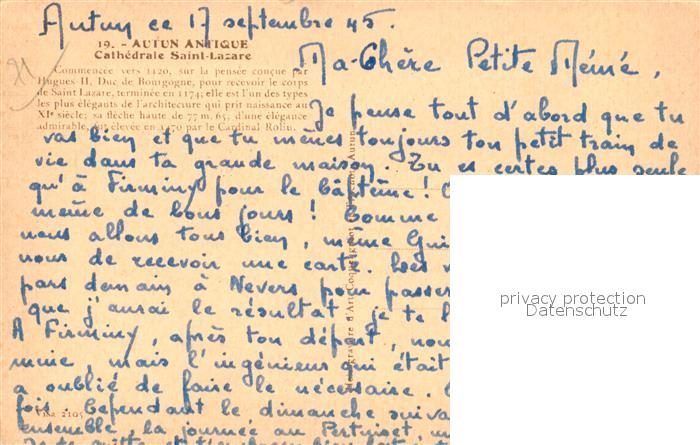 Autun ce 17 septembre 45.
19. - AUTUN ANTIQUE
Cathédrale Saint-Lazare
Ma Chère Petite Mémé,
Commencée vers 1120, sur la pensée conçue par
Hugues II, Duc de Bourgogne, pour recevoir le corps
de Saint Lazare, terminée en 1174; elle est l'un des types
les plus élégants de l'architecture qui prit naissance au
XIe siècle; sa flèche haute de 77 m. 65, d'une élégance
admirable, fut élevée en 1470 par le Cardinal Rolin.
Je pense tout d'abord que tu
vas bien et que tu mènes toujours ton petit train de
vie dans ta grande maison. Tu es certes plus seule
qu'à Firminy pour le bâptême!
même de bons jours! Comme
nous allons tous bien, même Gui
nous de recevoir une carte. Les
pars demain à Nevers pour passer
que j'aurai le résultat je te
A Firminy, après ton départ, nou
mine, mais l'ingénieur qui était
a oublié de faire le nécessaire.
fois. Cependant le dimanche suiva
Visa 2105
ensemble, la journée au Pertuiset,
Je te quitte et
privacy protection
Datenschutz